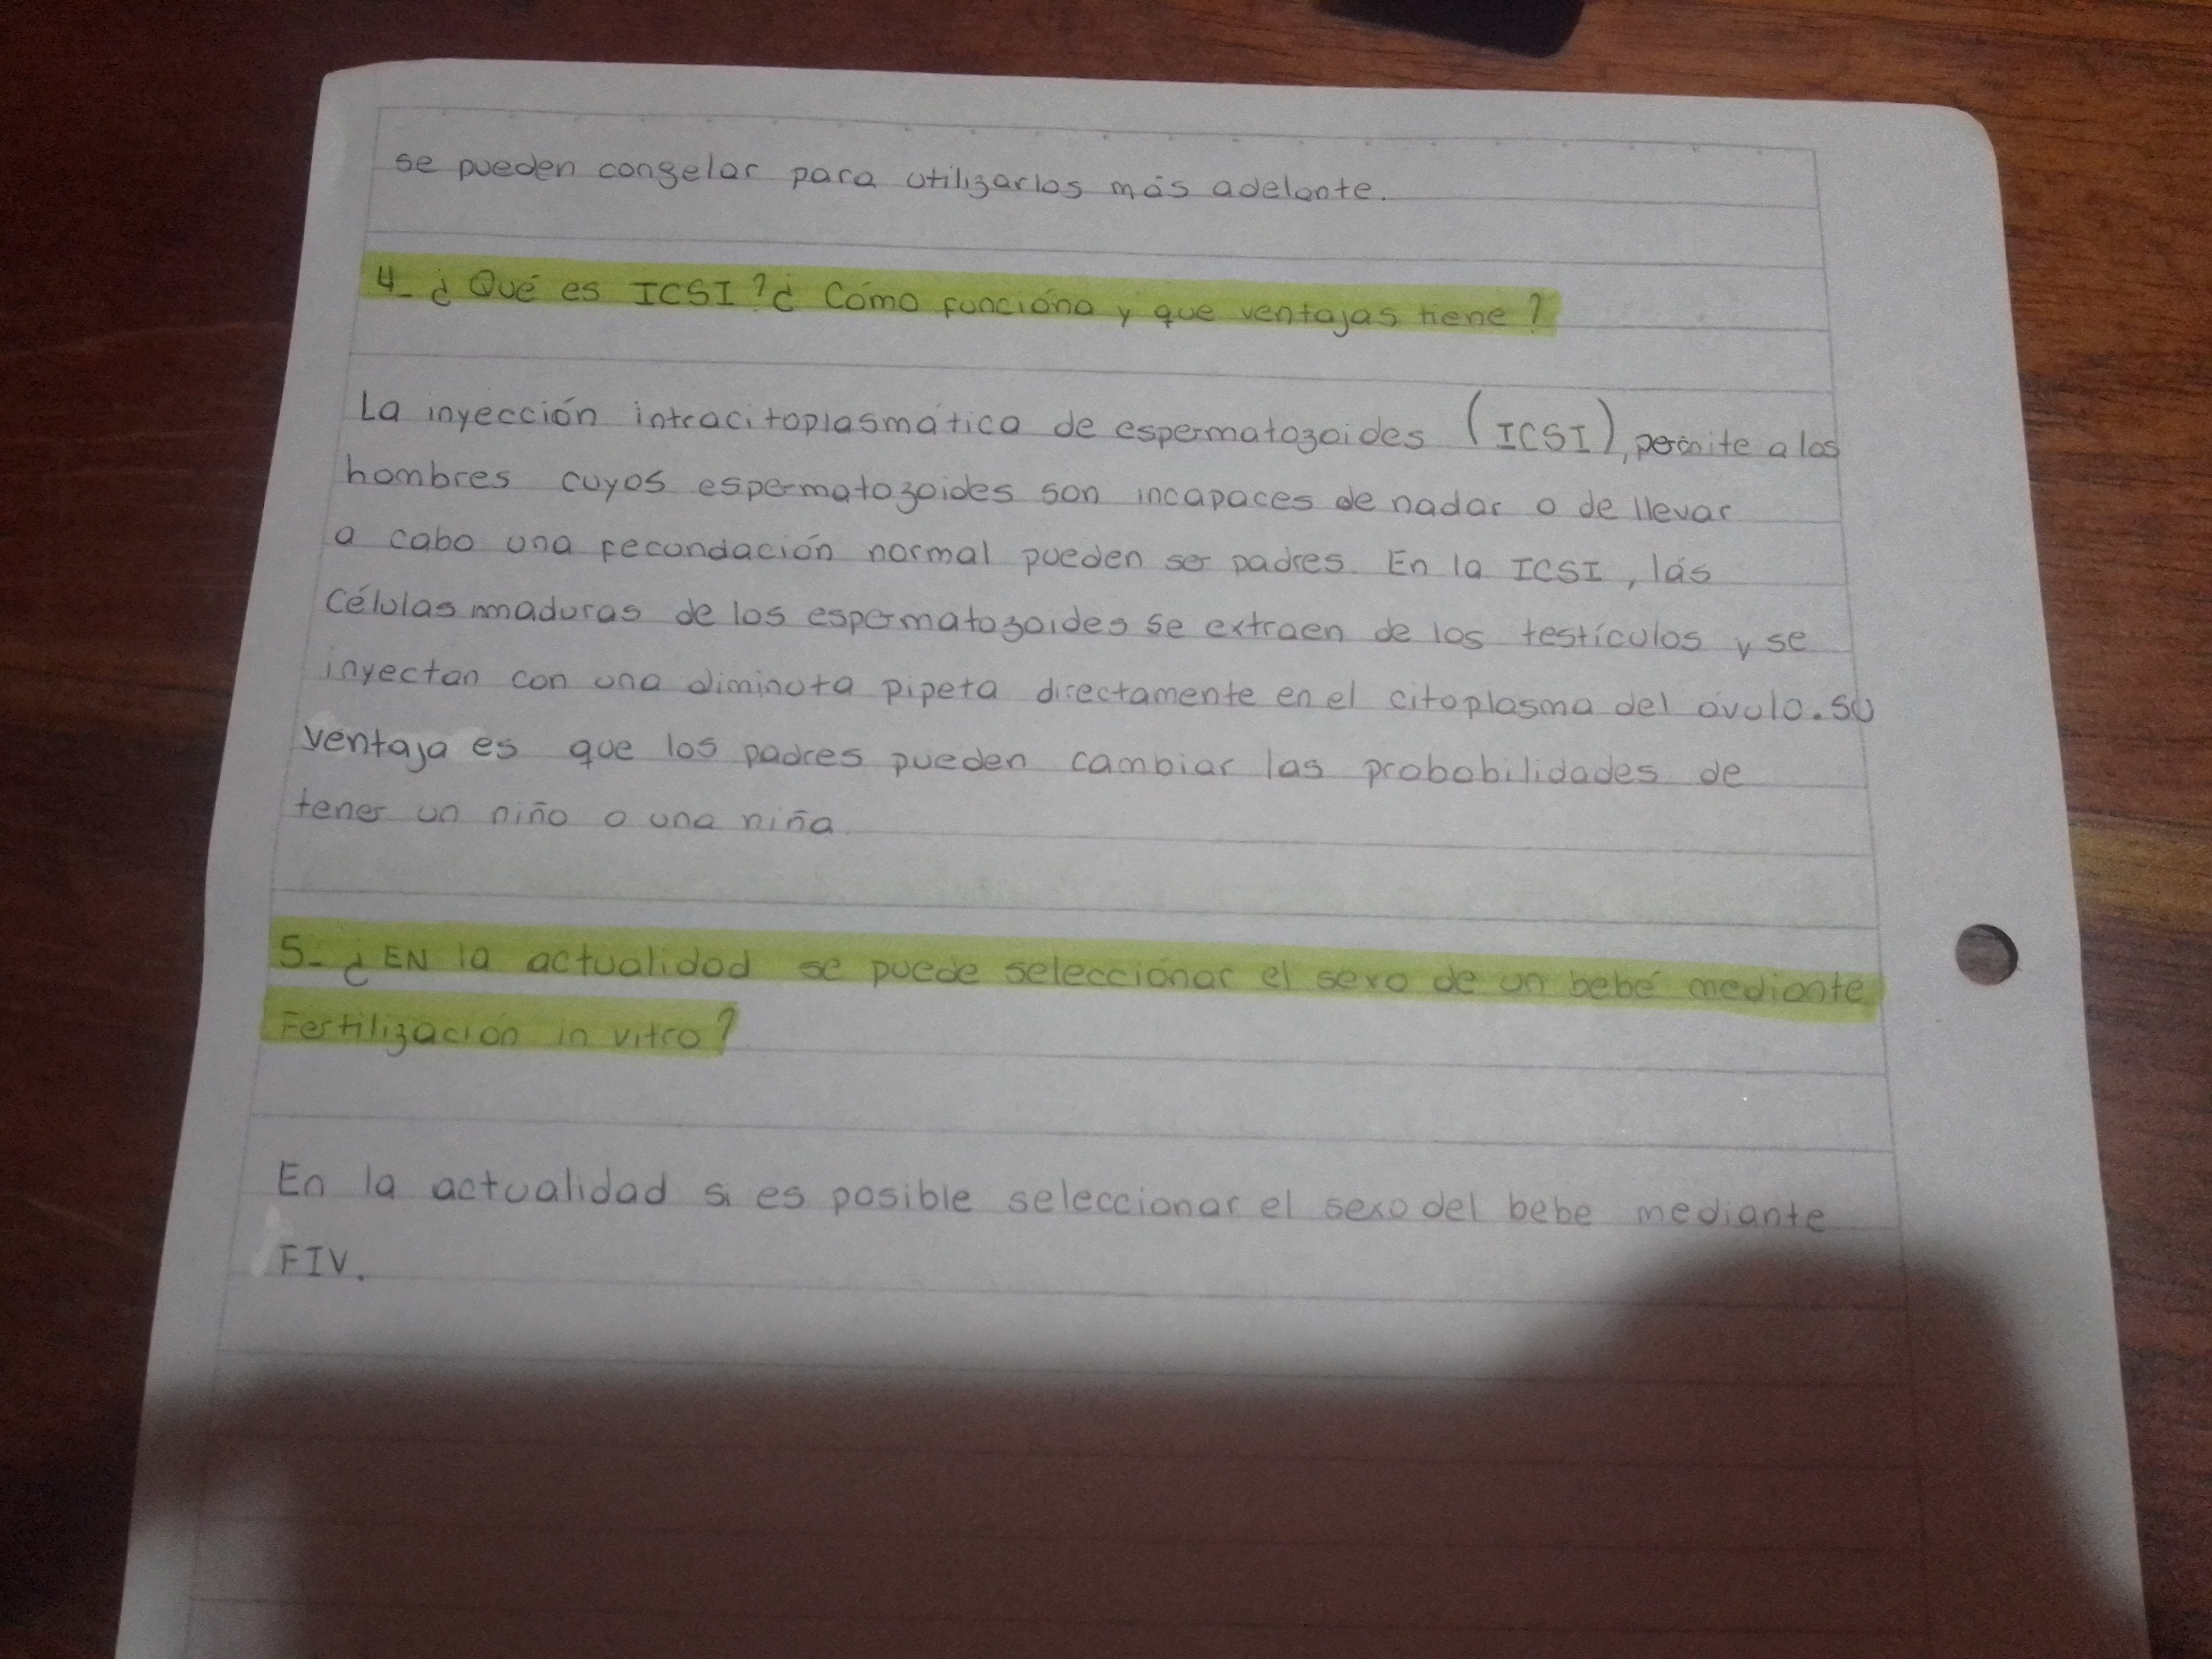 se pueden congelar para utilizarlos más adelante.
4- ¿Qué es ICSI?¿ Cómo funcióna y que ventajas tiene?
La inyección intracitoplasmática de espermatozoides (ICSI), permite a los
hombres cuyos espermatozoides son incapaces de nadar o de llevar
a cabo una fecundación normal pueden ser padres. En la ICSI, lás
Células maduras de los espermatozoides se extraen de los testículos y se
inyectan con una diminuta pipeta directamente en el citoplasma del óvulo. su
ventaja es que los padres pueden cambiar las probabilidades de
tener un niño o una niña.
5- ¿EN la actualidad se puede seleccionar el sexo de un bebé mediante
Fertilización in vitro?
En la actualidad si es posible seleccionar el sexo del bebe mediante
FIV.